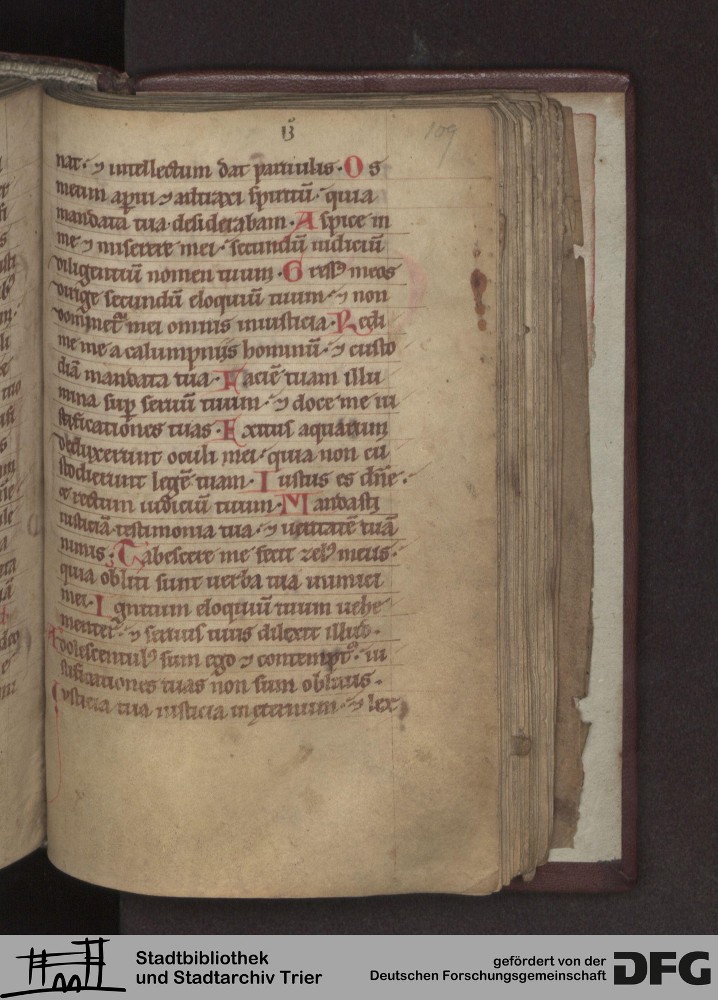 109
nat· ⁊ intellectum dat paruulis· Os
meum aꝑui ⁊ attraxi spiritū· quia
mandata tua desiderabam· Aspice in
me ⁊ miserere mei· secundū iudiciū
diligentiū nomen tuum· Gressꝰ meos
dirige secundū eloquiū tuum· ⁊ non
dominet᷑ mei omnis iniusticia· Redi
me me a calumpnijs hominū· ⁊ custo
diā mandata tua· Faciē tuam illu
mina suꝑ seruū tuum· ⁊ doce me iu
stificationes tuas· Exitus aquarum
deduxerunt oculi mei· quia non cu
stodierunt legē tuam· Iustus es dn̄e·
et rectum iudiciū tuum· Mandasti
iusticiā testimonia tua· ⁊ ueritatē tuā
nimis· Tabescere me fecit zelꝰ meus·
quia obliti sunt uerba tua inimici
mei· Ignitum eloquiū tuum uehe
menter· ⁊ seruus tuus dilexit illud·
Adolescentulꝰ sum ego ⁊ contemptꝰ· iu
stificationes tuas non sum oblitus·
Iusticia tua iusticia in ęternum· ⁊ lex
Stadtbibliothek
und Stadtarchiv Trier
gefördert von der
Deutschen Forschungsgemeinschaft
DFG